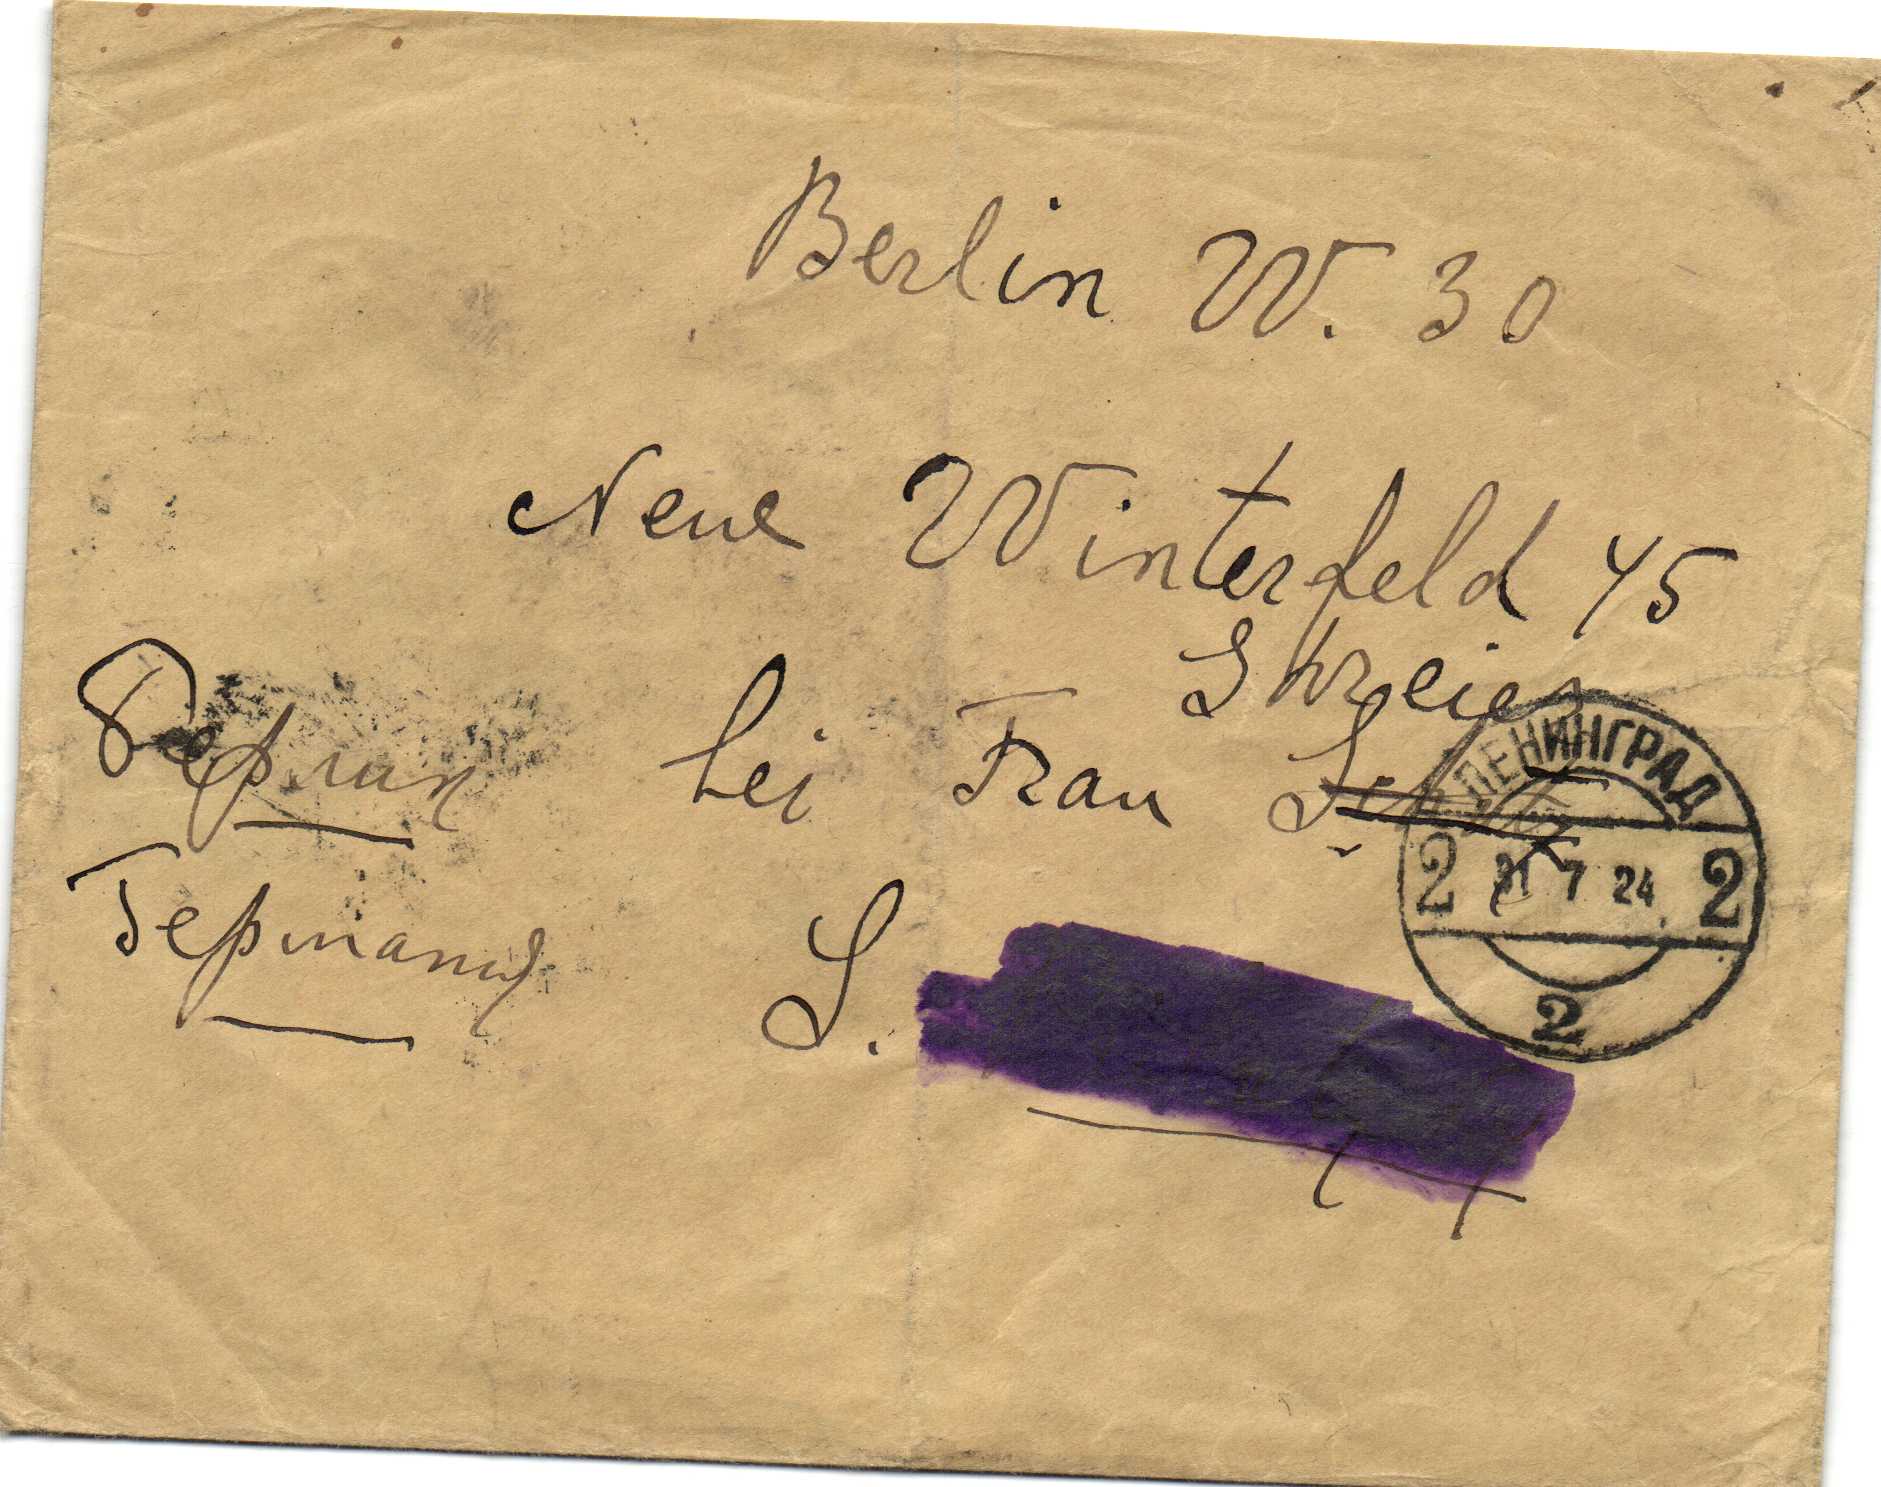 Berlin W. 30
Neue Winterfeld 45
Берлин bei Frau
Германия S.
ЛЕНИНГРАД
2 31 7 24 2
2